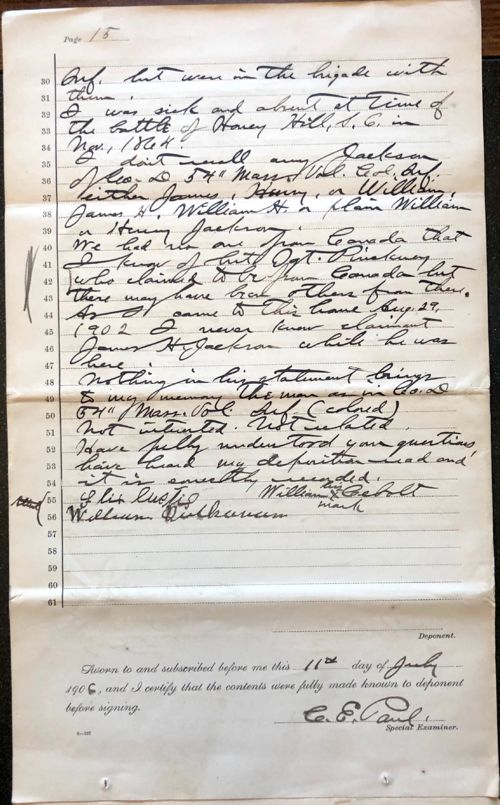 Page 15
30 Inf. but were in the brigade with
31 them.
32 I was sick and absent at time of
33 the battle of Honey Hill, S.C. in
34 Nov, 1864
35 I don't recall any Jackson
36 of Co. D 54" Mass. Vol. Col. Inf.
37 either James, Henry, or William,
38 James H., William H. or plain William
39 or Henry Jackson.
40 We had no one from Canada that
41 I know of but Sgt. Pinckney
42 who claimed to be from Canada but
43 there may have been others from there.
44 As I came to this home Aug. 29,
45 1902 I never knew claimant
46 James H. Jackson while he was
47 here.
48 Nothing in his statement brings
49 to my memory the man as in Co. D
50 54" Mass. Vol. Inf. (colored)
51 Not interested. Not related.
52 Have fully understood your questions,
53 have heard my deposition read and
54 it is correctly recorded.
55 William his x mark
56 William
57
58
59
60
61
Deponent.
Sworn to and subscribed before me this 11th day of July
1906, and I certify that the contents were fully made known to deponent
before signing.
C. E. Paul.
Special Examiner.